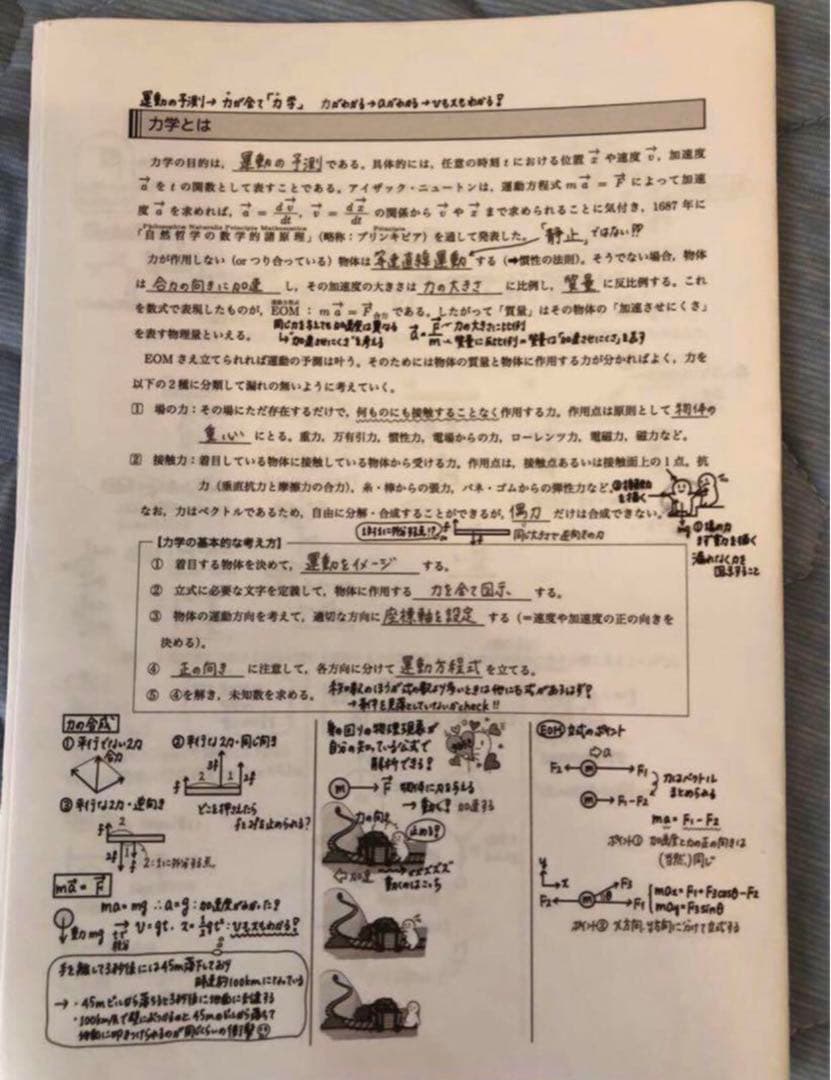 運動の予測→力が全て「力学」 力がわかる→aがわかる→vもxもわかる!
力学とは
力学の目的は、運動の予測である。具体的には、任意の時刻tにおける位置x⃗や速度v⃗、加速度
a⃗をtの関数として表すことである。アイザック・ニュートンは、運動方程式ma⃗=F⃗によって加速
度a⃗を求めれば、a⃗=dv⃗/dt、v⃗=dx⃗/dtの関係からv⃗やx⃗まで求められることに気付き、1687年に
Philosophiae Naturalis Principia Mathematica Principia
「自然哲学の数学的諸原理」(略称:プリンキピア)を通して発表した。「静止」ではない!?
力が作用しない(orつり合っている)物体は等速直線運動する(➡慣性の法則)。そうでない場合、物体
は合力の向きに加速し、その加速度の大きさは力の大きさに比例し、質量に反比例する。これ
運動方程式
を数式で表現したものが、EOM:ma⃗=F⃗合力である。したがって「質量」はその物体の「加速させにくさ」
を表す物理量といえる。
同じ力を与えても加速度は異なる
↳"加速させにくさ"を考える
a⃗=F⃗/m
→力の大きさに比例
→質量に反比例→質量は"加速させにくさ"を表す
EOMさえ立てられれば運動の予測は叶う。そのためには物体の質量と物体に作用する力が分かればよく、力を
以下の2種に分類して漏れの無いように考えていく。
① 場の力:その場にただ存在するだけで、何ものにも接触することなく作用する力。作用点は原則として物体の
重心にとる。重力、万有引力、慣性力、電場からの力、ローレンツ力、電磁力、磁力など。
② 接触力:着目している物体に接触している物体から受ける力。作用点は、接触点あるいは接触面上の1点。抗
力(垂直抗力と摩擦力の合力)、糸・棒からの張力、バネ・ゴムからの弾性力など。
②接触力
を描く
なお、力はベクトルであるため、自由に分解・合成することができるが、偶力だけは合成できない。
同じ大きさで逆向きの力
mg
①場の力
まず重力を描く
漏れなく力を
図示すること
【力学の基本的な考え方】
① 着目する物体を決めて、運動をイメージする。
② 立式に必要な文字を定義して、物体に作用する力を全て図示する。
③ 物体の運動方向を考えて、適切な方向に座標軸を設定する(=速度や加速度の正の向きを
決める)。
④ 正の向きに注意して、各方向に分けて運動方程式を立てる。
⑤ ④を解き、未知数を求める。 未知数のほうが式の数より多いときは他にも式があるはず?
→条件を見落としていないかcheck!!
力の合成
①平行でない2力
合力
②平行な2力・同じ向き
f 2 3f 1 2f
どこを押さえたら
fと2fを止められる?
③平行な2力・逆向き
f 2
2f 1 f 2:1に外分する点。
ma⃗=F⃗
ma=mg ∴a=g:加速度がわかった?
重力mg
tで
積分
v=gt. x=½gt²:vもxもわかる?
手を離して3秒後には45m落下しており
時速約100kmになっている
→・45mビルから落ちると3秒後に地面に到達する
・100km/hで壁にぶつかるのと45mのビルから落ちて
地面に叩きつけられるのが同じくらいの衝撃
身の回りの物理現象が
自分の知っている公式で
解析できる?
m→F⃗ 物体に力を与える
→動く? 加速する
力の向き
止める?
加速
ズズズズ
動くのはこっち
EOM 立式のポイント
⇨a
F₂←m→F₁
m→F₁-F₂
力はベクトル
まとめられる
ma=F₁-F₂
ポイント① 加速度と力の正の向きは
(当然)同じ
y
x
F₂←m→F₁ F₃ θ
max=F₁+F₃cosθ-F₂
may=F₃sinθ
ポイント② x方向、y方向に分けて立式する